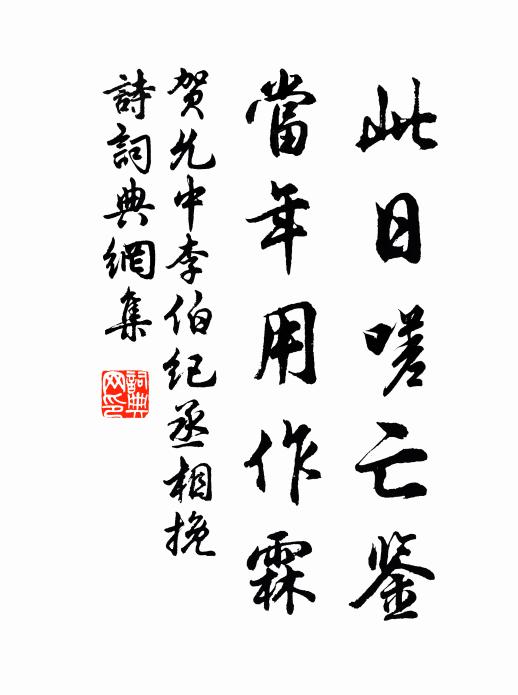 此日嗟亡鉴
當年用作霖
贺允中李伯纪丞相挽
詩詞典網集
詞典网印